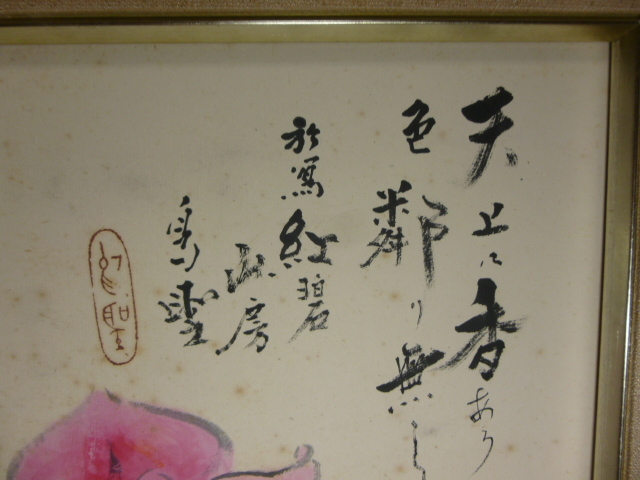 天上に香あり
色鄰り無し
於寫紅碧
山房